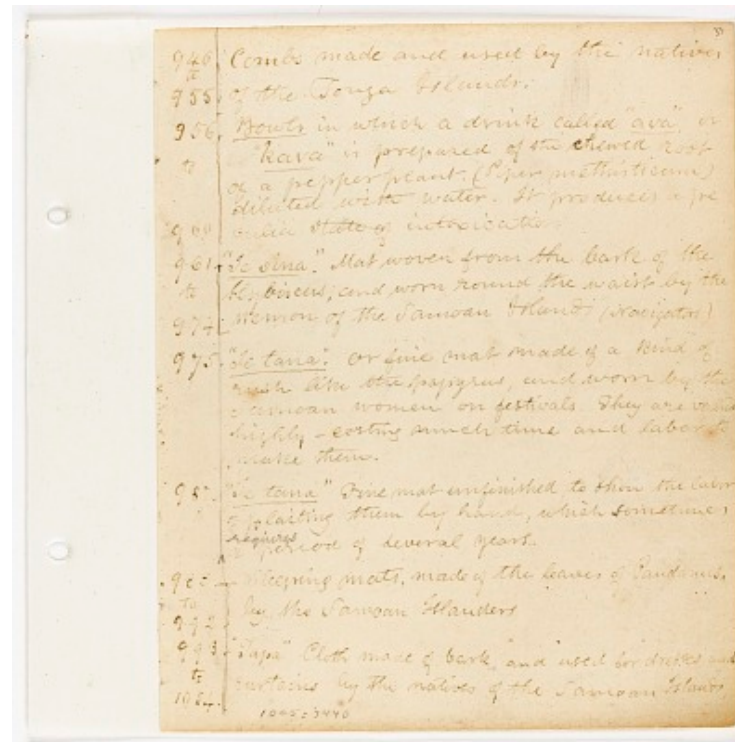 33
946 Combs made and used by the natives
to
955. of the Tonga Islands.
956. Bowls in which a drink called "ava" or
to "Kava" is prepared of the chewed root
of a pepper plant. (Piper methisticum)
diluted with water. It produces a pe
960 culiar state of intoxication.
961. "Ie Sina". Mat woven from the bark of the
to hybiscus, and worn round the waist by the
974. of the Samoan Islands (Navigators)
975. "Ie tana". or fine mat made of a kind of
rush like the papyrus, and worn by the
Samoan women on festivals. They are
highly - costing much time and labor to
make them.
"Ie tana" Fine mat unfinished to show the labor
of plaiting them by hand, which sometimes
requires
a period of several years.
Sleeping mats, made of the leaves of Pandanus,
to by the Samoan Islanders
992.
993. "Tapa" Cloth made of bark, and used for dresses and
to curtains by the natives of the Samoan Islands